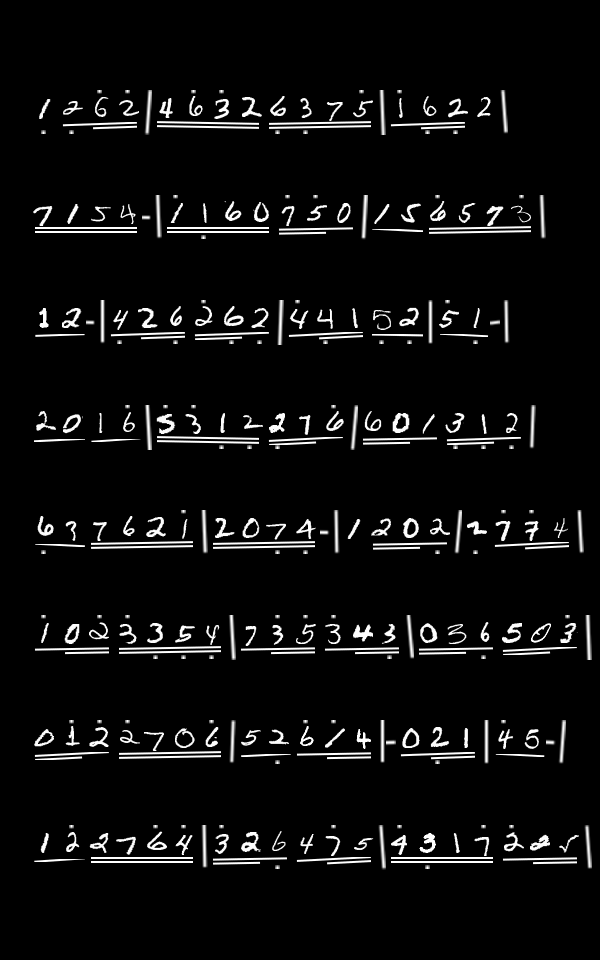 1 2 6 2 | 4 6 3 2 6 3 7 5 | 1 6 2 2 |
7 1 5 4 - | 1 1 6 0 7 5 0 | 1 5 6 5 7 3 |
1 2 - | 4 2 6 2 6 2 | 4 4 1 5 2 | 5 1 - |
2 0 1 6 | 5 3 1 2 2 7 6 | 6 0 1 3 1 2 |
6 3 7 6 2 1 | 2 0 7 4 - | 1 2 0 2 | 2 7 7 4 |
1 0 2 3 3 5 4 | 7 3 5 3 4 3 | 0 3 6 5 0 3 |
0 1 2 2 7 0 6 | 5 2 6 1 4 | - 0 2 1 | 4 5 - |
1 2 2 7 6 4 | 3 2 6 4 7 5 | 4 3 1 7 2 2 5 |